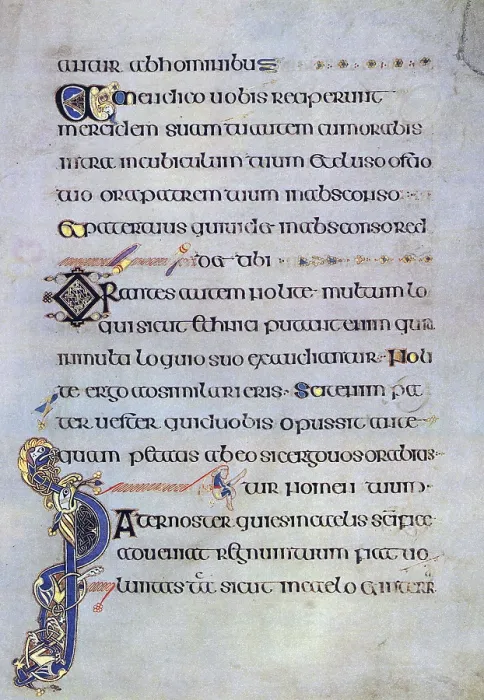 antur abhominibus
Amen dico uobis reciperunt
mercidem suam tu autem cum orabis
intra in cubiculum tuum & cluso ostio
tuo ora patrem tuum in absconso
& pater tuus qui uidet in absconso red
det tibi
Orantes autem nolite multum lo
qui sicut &hnici putant enim quia
in multa loquio suo exaudiantur Noli
te ergo adsimilari eis Scit enim pa
ter uester quid uobis opus sit ante
quam p&atis ab eo sic ergo uos orabitis
tur nomen tuum
Pater noster qui es in caelis scifice
adueniat regnum tuum fiat uo
luntas tua sicut in caelo & in terra